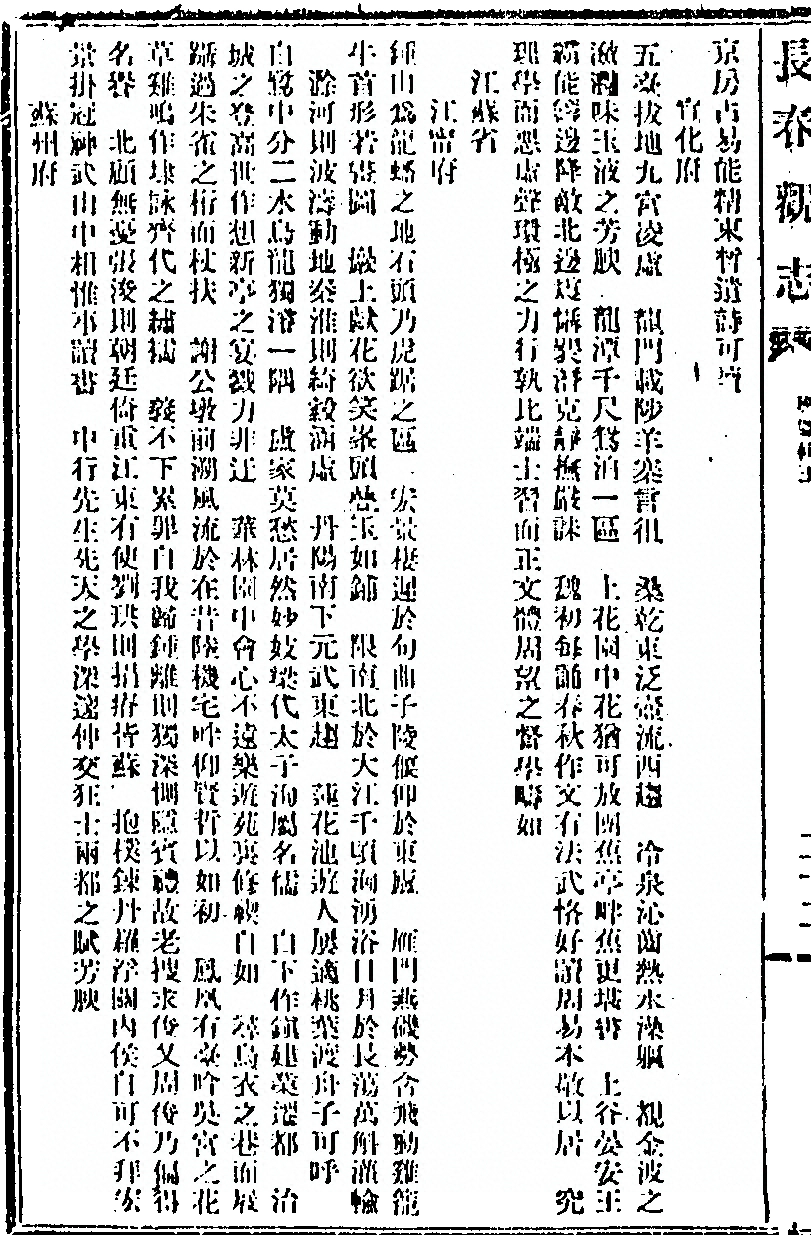 長春觀志
京房古易能精束晳遺詩可
宣化府
五臺拔地九宮淩虛　龍門載陟羊寨曾徂　桑乾東泛壺流西趨　冷泉沁齒熱水澡軀　覩金波之
瀲灩味玉液之芳腴　龍潭千尺鴛泊一區　上花園中花猶可放團焦亭畔蕉更堪書　上谷晏安王
霸能綏邊降敵北邊震懾裴潛克靜撫嚴誅　魏初每誦春秋作文有法武恪好讀周易本敬以居　究
理學而恶虛聲環極之力行孰比端士習而正文體周望之督學疇如
江蘇省
江甯府
鍾山爲龍蟠之地石頭乃虎踞之區　宏景棲遲於句曲子陵偃仰於東廬　雁門燕磯勢合飛動雞籠
牛首形若畫圖　巖上獻花欲笑峯頭疊玉如鋪　限南北於大江千頃洶湧浴日月於長蕩萬斛灌輸
滁河則波濤動地秦淮則綺縠涵虛　丹陽南下元武東趨　蓮花池遊人屢適桃葉渡舟子可呼
白鷺中分二水烏龍獨澝一隅　盧家莫愁居然妙妓梁代太子洵屬名儒　白下作鎮建業遷都　冶
城之登高世作想新亭之宴戮力非迂　華林園中會心不遠樂遊苑裏修禊自如　尋烏衣之巷而屐
躡過朱雀之桁而杖扶　謝公墩前溯風流於在昔陸機宅畔仰賢哲以如初　鳳凰有臺吟吳宮之花
草雞鳴作埭詠齊代之繡襦　毅不下累舉自我歸鍾離則獨深惻隱賓禮故老搜求俊乂周俊乃偏得
名譽　北顧無憂張浚則朝廷倚重江東有使劉珙則捐瘠皆蘇　抱樸鍊丹羅浮關內侯自可不拜宏
景掛冠神武山中相惟事讀書　中行先生先天之學深邃仲交狂士兩都之賦芳腴
蘇州府